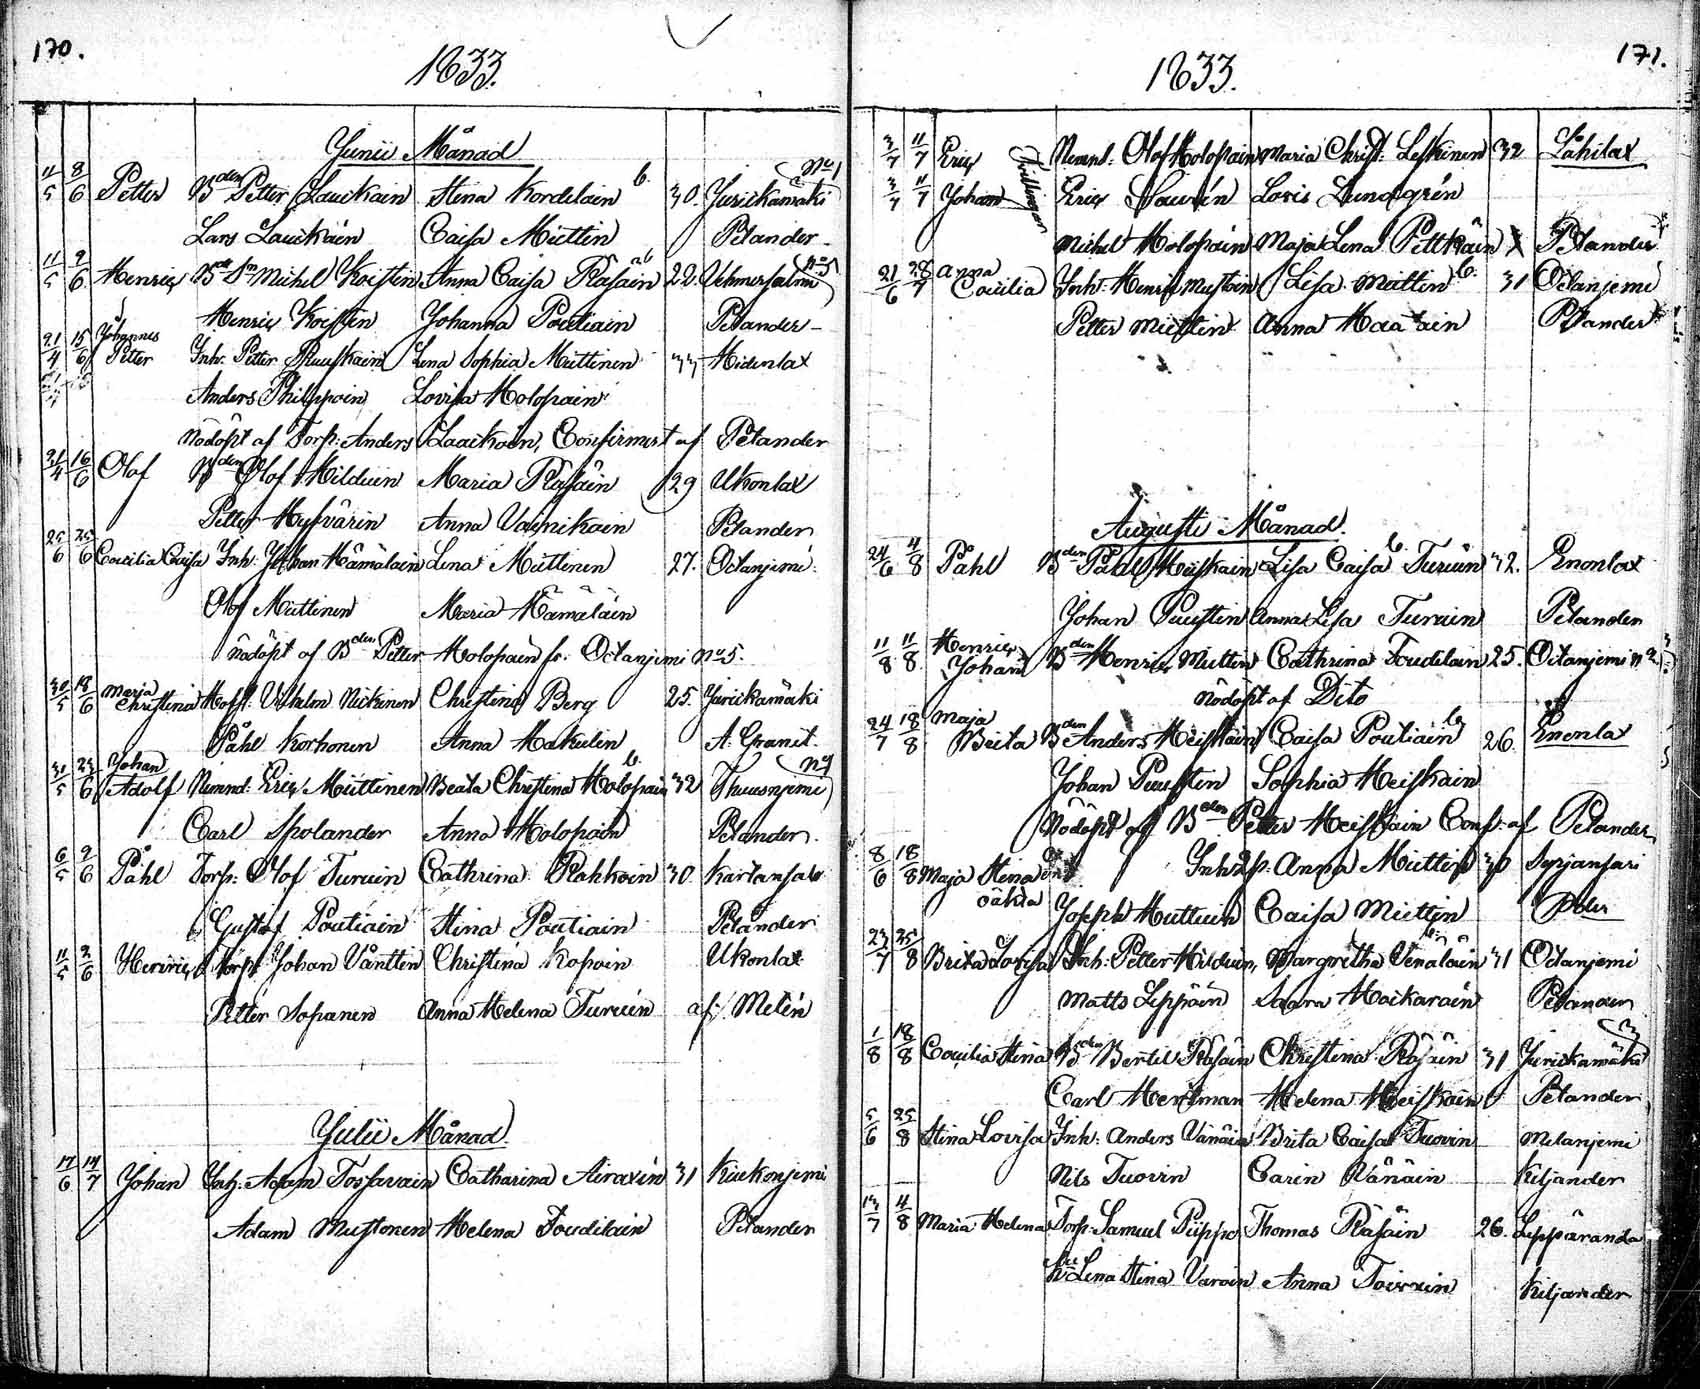 170.
1833.
Junii Månad
11/5 8/6 Petter Bden Petter Lauikain Stina Kordelain b. 30. Jurickamäki No 1
Lars Lauikain Caisa Miettin Pelander
11/5 9/6 Henric Bde Sn Michel Koisten Anna Caisa Räsäin 22. Vehmersalmi No 5
Henric Koisten Johanna Poutiain Pelander
21/4 15/6 Johannes Petter Inh: Petter Ruuskain Lena Sophia Miettinen 33 Hidenlax
Anders Philppoin Lovisa Holopain
nödöpt af Torp: Anders Laaikoin, Confirmert af Pelander
21/4 16/6 Olof Bden Olof Hilduin Maria Räsäin 29 Ukonlax
Petter Hyfvärin Anna Vainikain Pelander
25/6 Cæcilia Caisa Inh: Johan Hämäläin Lena Miettinen 27. Oitanjemi
Olof Miettinen Maria Hämäläin
nödöpt af Bden Petter Holopain fr. Oitanjemi No 5.
30/5 18/6 Maria Christina Hofsl. Vilhelm Nickinen Christina Berg 25. Jurickamäki
Påhl Korhonen Anna Hakulin A. Granit.
31/5 23/6 Johan Adolf Nemnd: Eric Miettinen Beata Christina Holopain b. 32 Thuusnjemi
Carl Spolander Anna Holopain Pelander.
6/5 9/6 Påhl Torp: Olof Turuin Cathrina Rahkoin 30. Kartansalo
Gustaf Poutiain Stina Poutiain Pelander
11/5 2/6 Henric Torp: Johan Väntten Christina Kopoin Ukonlax
Petter Sopanen Anna Helena Turuin af Melén
Julii Månad.
17/6 14/7 Johan Adam Tossavain Catharina Airaxin 31 Kuckonjemi
Adam Mustonen Helena Toudilain Pelander
171.
1833.
3/7 11/7 Eric Nemnd: Olof Holopain Maria Christ: Leskinen 32 Låhilax
3/7 11/7 Johan Tvillingar Eric Sauvén Lovis Lundgrén
Michel Holopain Maja Lena Pittkäin Pelander
21/6 28/7 Anna Cæcilia Inh: Henric Mustoin Lisa Miettin b. 31 Oitanjemi
Petter Miettin Anna Haatain Pelander
Augusti Månad.
24/6 4/8 Påhl Bden Påhl Heiskain Lisa Caisa Turuin b. 32. Enonlax
Johan Puustin Anna Lisa Turuin Pelander
11/8 11/8 Henric Johan Bden Henric Miettin Cathrina Toudilain 25. Oitanjemi N 2
nödöpt af Dito
24/7 18/8 Maja Brita Bden Anders Heiskain Caisa Poutiain b. 26. Enonlax
Johan Puustin Sophia Heiskain
Nödöpt af Bden Petter Heiskain Conf: af Pelander
8/6 18/8 Maja Stina oäkta Inh: Anna Miettin 30 Syrjansari
Joseph Huttuin Caisa Miettin
23/7 25/8 Brita Lovisa Inh: Petter Hilduin, Margretha Venäläin 31 Oitanjemi
Matts Leppäin Saara Hackarain Pelander
1/8 18/8 Cæcilia Stina Bden Bertil Räsäin Christina Räsäin 31 Jurickamäki 3
Carl Hertman Helena Heiskain Pelander
5/6 25/8 Stina Lovisa Inh: Anders Vänäin Brita Caisa Tuovin Melanjemi
Nils Tuovin Carin Vänäin Kiljander
13/7 4/8 Maria Helena Torp: Samuel Piippo Thomas Räsäin 26. Leppäranda
Lena Stina Varoin Anna Toivain Kiljander